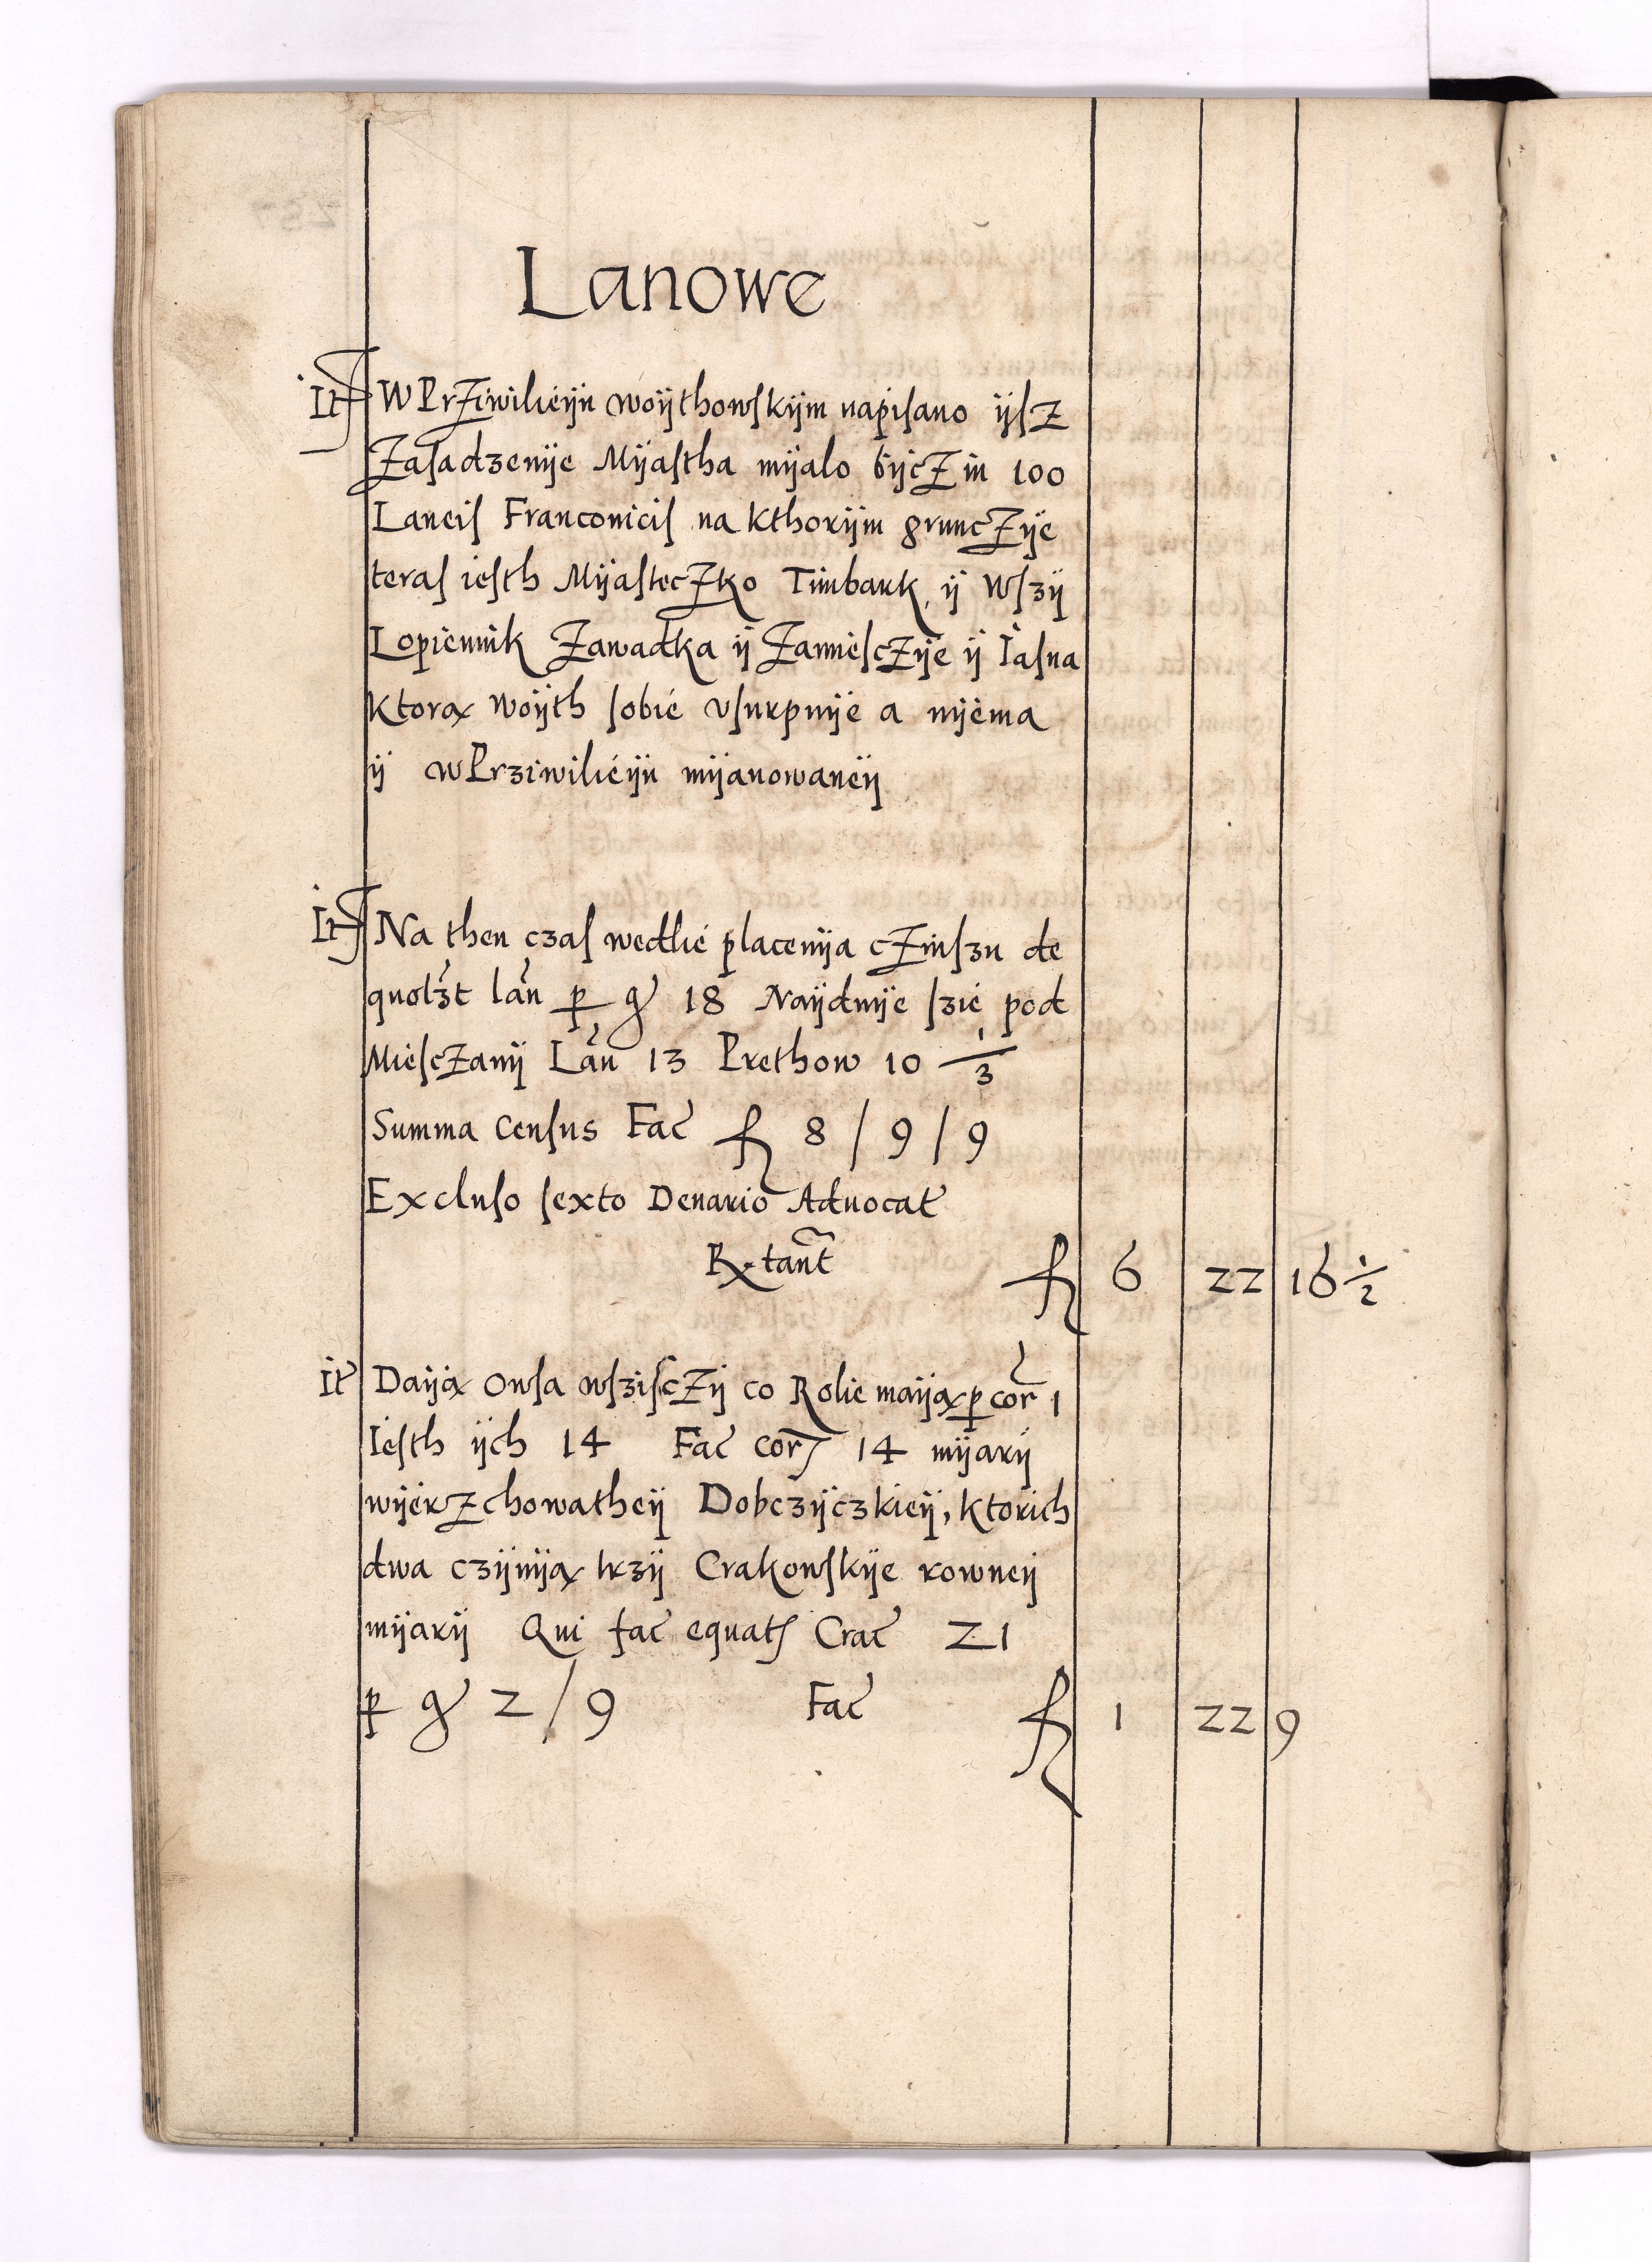 Lanowe
It WPrziwilieÿu woÿthowskÿm napisano ÿsz
Zasadzenÿe Mÿastha mÿalo bÿcz in 100
Laneis Franconicis na kthorÿm grunczÿe
teras iesth Mÿasteczko Timbark, ÿ Wszÿ
Lopiennik Zawadka ÿ Zamiesczÿe ÿ Iasna
ktorą woÿth sobie vsurpuÿe a nÿema
ÿ wPrziwilieÿu mÿanowaneÿ
It Na then czas wedlie placenÿa czÿnszu de
quolzt lan p gr 18 Naÿduÿe szie pod
Miesczanÿ Lan 13 Prethow 10 1/3
Summa census Fac f 8 / 9 / 9
Excluso sexto Denario Aduocat
Rx tant f 6 22 16 1/2
It Daÿą Owsa wszisczÿ co Rolie maÿą p cor 1
Iesth ÿch 14 Fac cor 14 mÿarÿ
wÿerzchowatheÿ Dobczÿczkieÿ, ktorich
dwa czÿnÿą trzÿ Crakowskÿe rowneÿ
mÿarÿ Qui fac equat Crac 21
p gr 2 / 9 Fac f 1 22 9